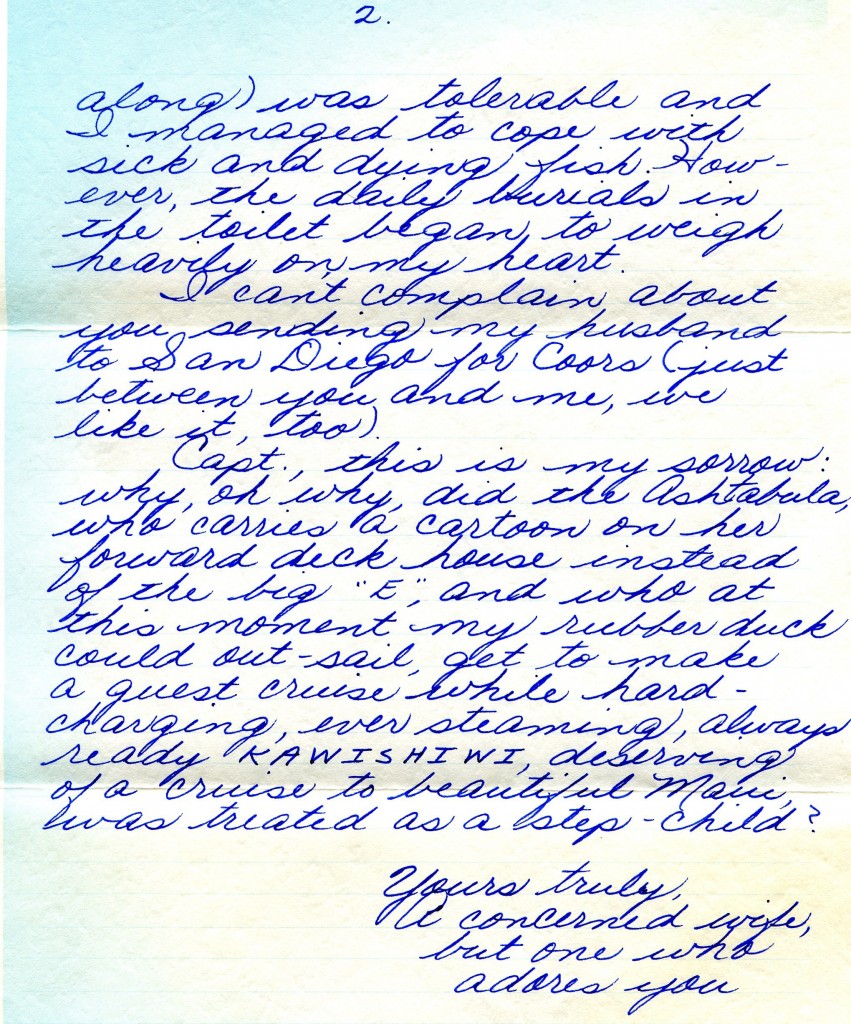 2.
along) was tolerable and
I managed to cope with
sick and dying fish. How-
ever, the daily burials in
the toilet began to weigh
heavily on my heart.
I can't complain about
you sending my husband
to San Diego for Coors (just
between you and me, we
like it, too).
Capt., this is my sorrow:
why, oh why, did the Ashtabula,
who carries a cartoon on her
forward deck house instead
of the big "E", and who at
this moment my rubber duck
could out-sail, get to make
a guest cruise while hard-
charging, ever steaming, always
ready KAWISHIWI, deserving
of a cruise to beautiful Maui,
was treated as a step-child?
Yours truly,
A concerned wife,
but one who
adores you